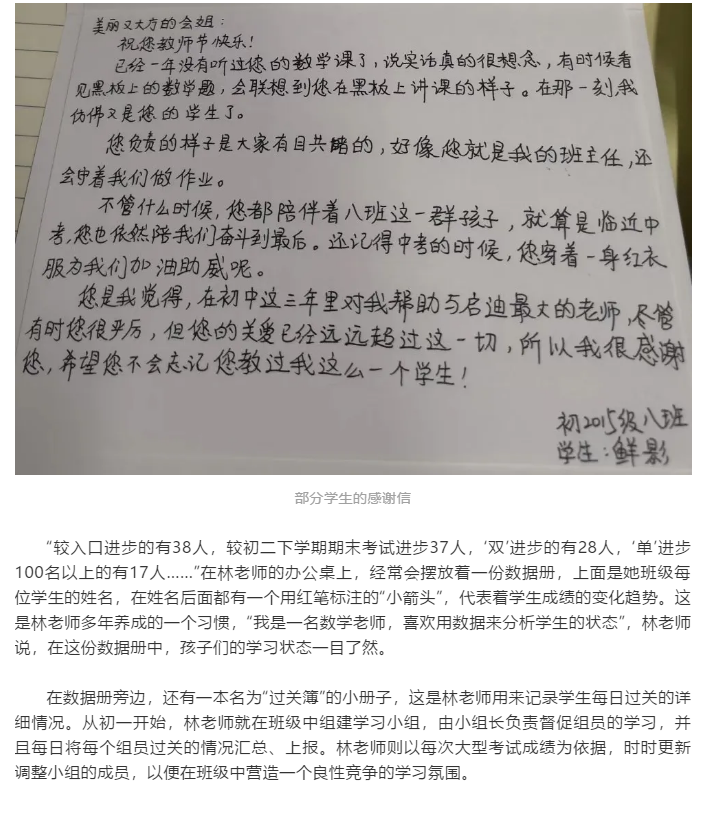 美丽又大方的会姐：
祝您教师节快乐！
已经一年没有听过您的数学课了，说实话真的很想念，有时候看
见黑板上的数学题，会联想到您在黑板上讲课的样子。在那一刻，我
仿佛又是您的学生了。
您负责的样子是大家有目共睹的，好像您就是我的班主任，还
会守着我们做作业。
不管什么时候，您都陪伴着八班这一群孩子，就算是临近中
考，您也依然陪我们奋斗到最后。还记得中考的时候，您穿着一身红衣
服为我们加油助威呢。
您是我觉得，在初中这三年里对我帮助与启迪最大的老师，尽管
有时您很严厉，但您的关爱已经远远超过这一切，所以我很感谢
您，希望您不会忘记您教过我这么一个学生！
初2015级八班
学生：鲜影
部分学生的感谢信
“较入口进步的有38人，较初二下学期期末考试进步37人，‘双’进步的有28人，‘单’进步
100名以上的有17人……”在林老师的办公桌上，经常会摆放着一份数据册，上面是她班级每
位学生的姓名，在姓名后面都有一个用红笔标注的“小箭头”，代表着学生成绩的变化趋势。这
是林老师多年养成的一个习惯，“我是一名数学老师，喜欢用数据来分析学生的状态”，林老师
说，在这份数据册中，孩子们的学习状态一目了然。
在数据册旁边，还有一本名为“过关簿”的小册子，这是林老师用来记录学生每日过关的详
细情况。从初一开始，林老师就在班级中组建学习小组，由小组长负责督促组员的学习，并
且每日将每个组员过关的情况汇总、上报。林老师则以每次大型考试成绩为依据，时时更新
调整小组的成员，以便在班级中营造一个良性竞争的学习氛围。